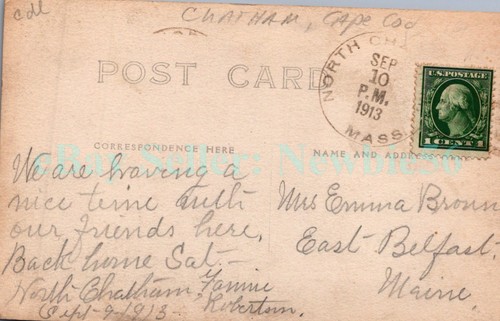 cdl
CHATHAM, Cape Cod
POST CARD
NORTH CHA
SEP
10
P.M.
1913
MASS.
U.S. POSTAGE
1 CENT 1
CORRESPONDENCE HERE
NAME AND ADDRESS
eBay Seller: Newbie56
We are having a
nice time with
our friends here.
Back home Sat.-
North Chatham Fannie
Sept-9-1913- Robertson.
Mrs Emma Brown
East Belfast.
Maine.